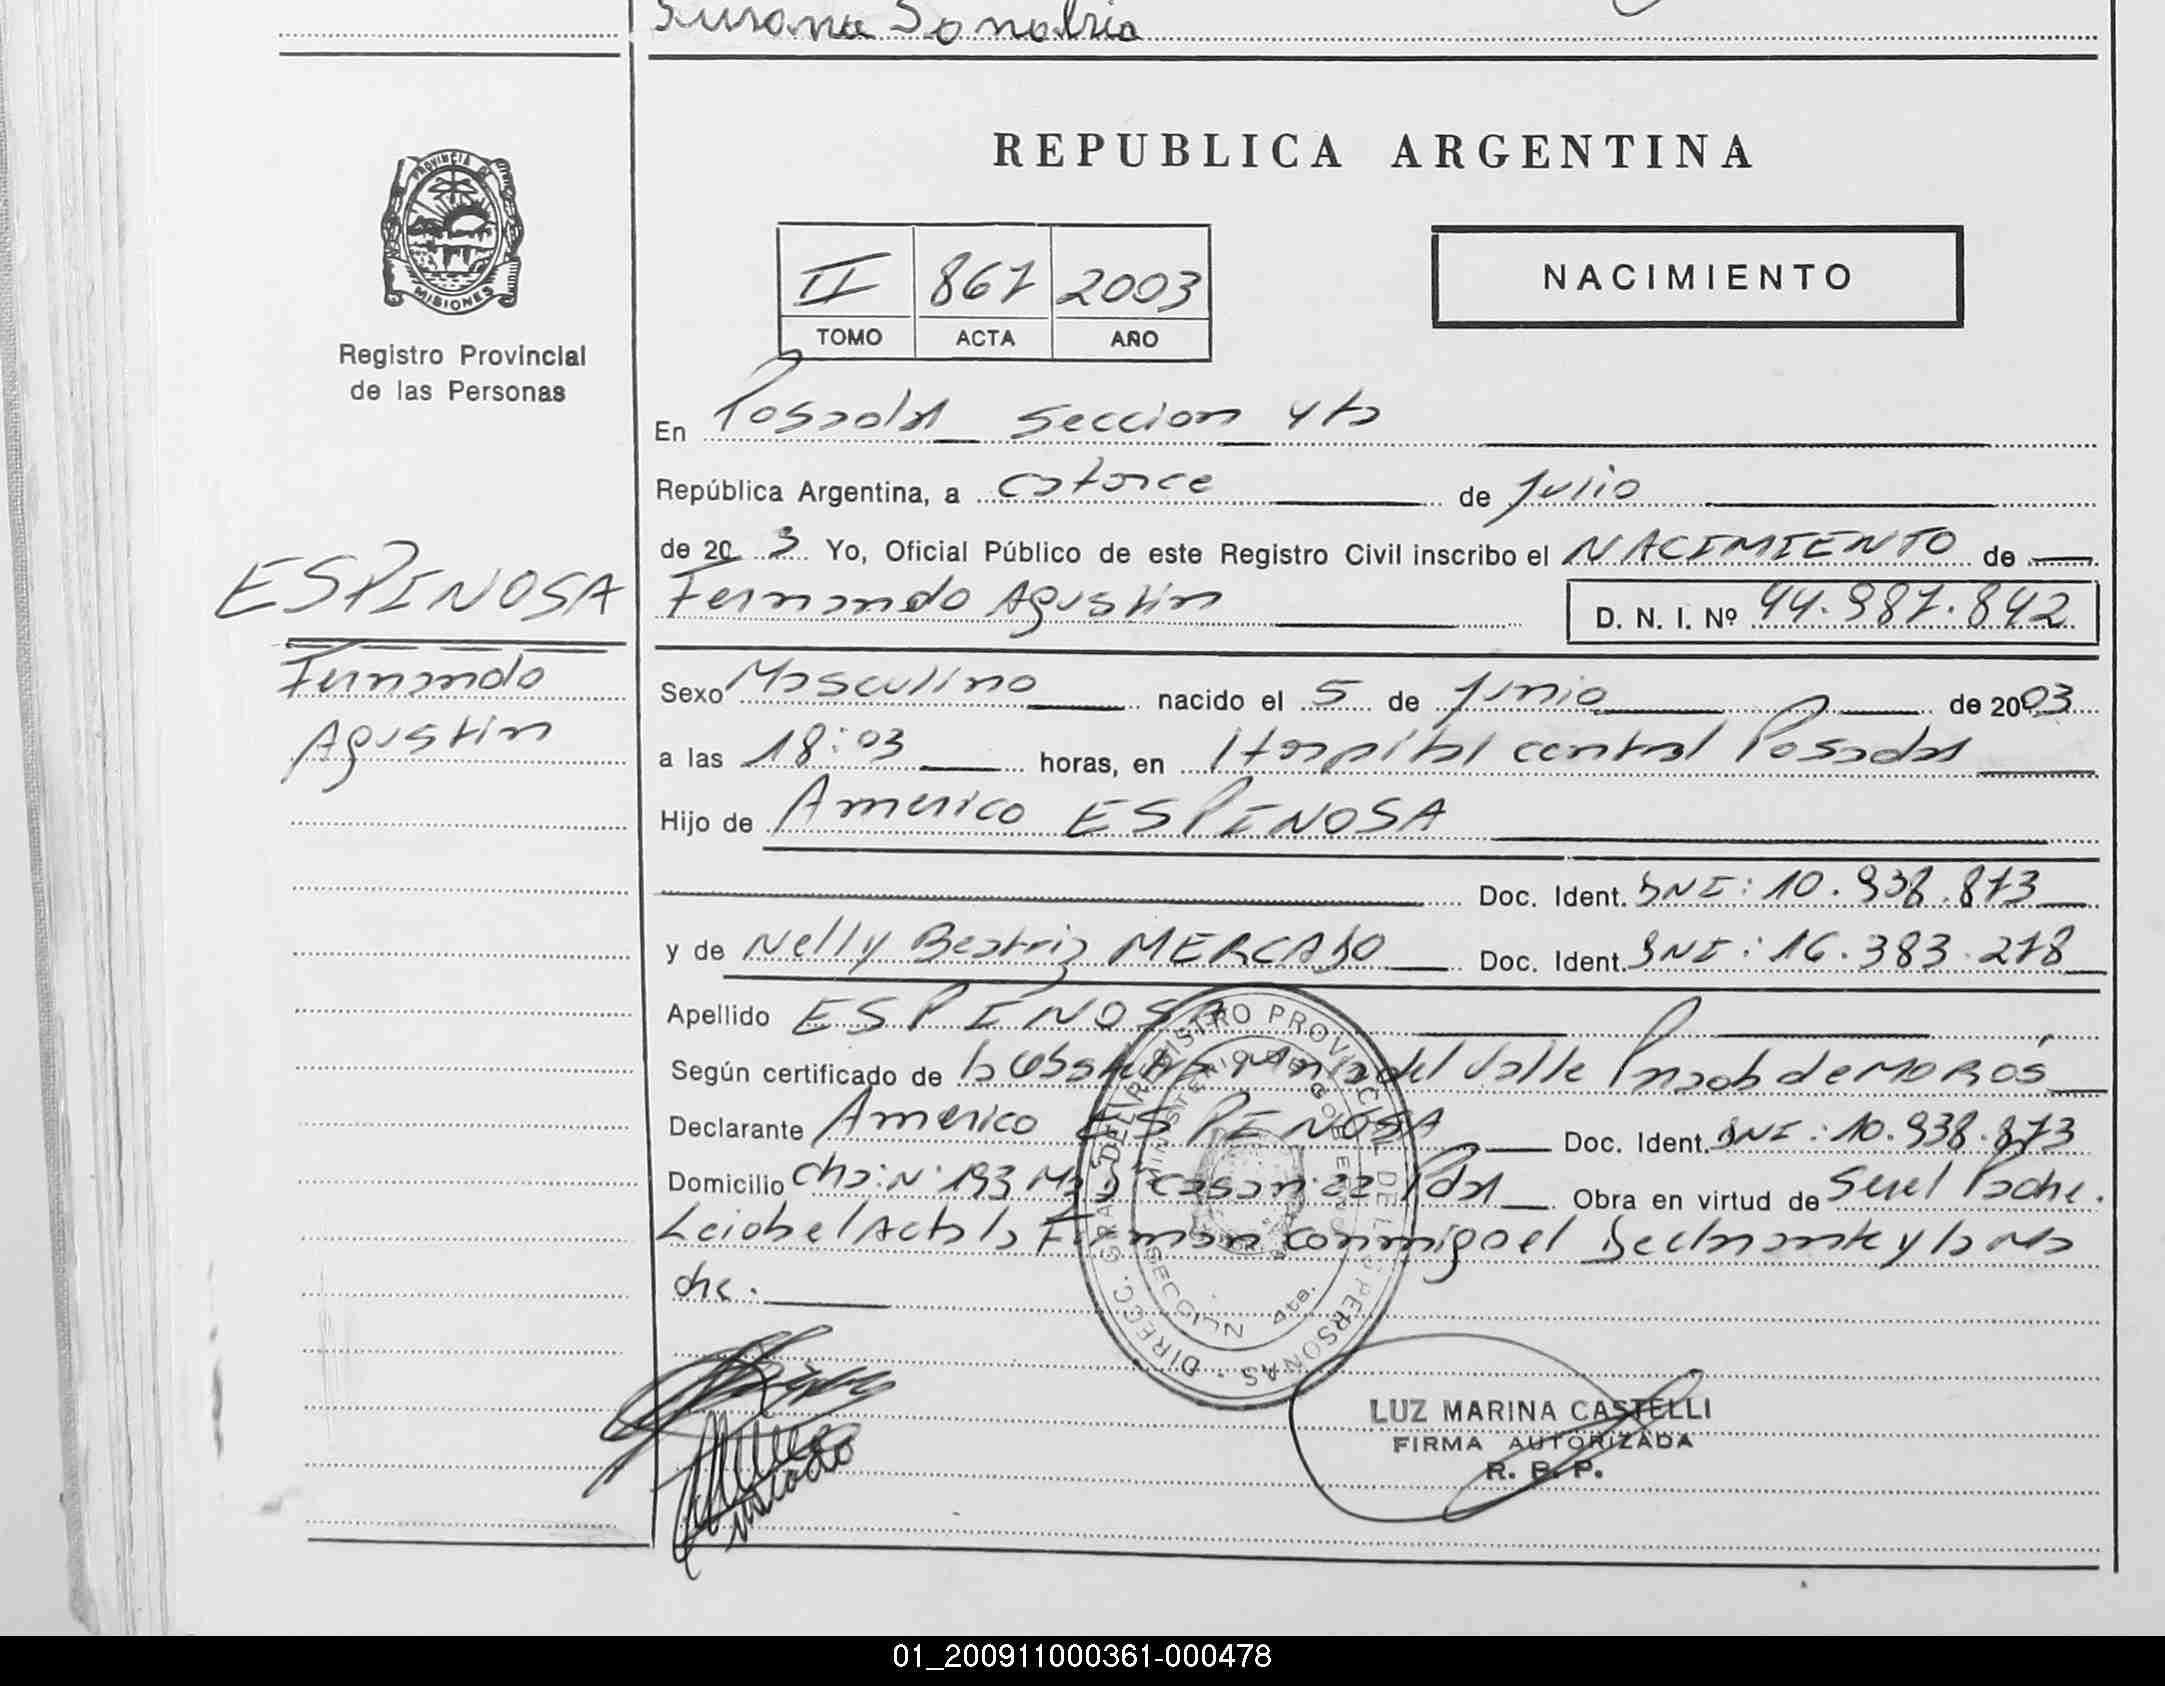 Susana Sanabria
REPUBLICA ARGENTINA
PROVINCIA DE
MISIONES
Registro Provincial
de las Personas
II 867 2003
TOMO ACTA AÑO
NACIMIENTO
En Posadas Seccion 4ta
República Argentina, a catorce de Julio
de 20 3 Yo, Oficial Público de este Registro Civil inscribo el NACIMIENTO de
ESPINOSA
Fernando Agustin D. N. I. Nº 44.987.842
Fernando
Agustin
Sexo Masculino nacido el 5 de Junio de 2003
a las 18:03 horas, en Hospital central Posadas
Hijo de Americo ESPINOSA
Doc. Ident. DNI: 10.938.873
y de Nelly Beatriz MERCADO Doc. Ident. DNI: 16.383.278
Apellido ESPINOSA
Según certificado de la Obstetra Maria del Valle de MOROS
Declarante Americo ESPINOSA Doc. Ident. DNI: 10.938.873
Domicilio Cha: N° 193 casa n: 22 Pdas Obra en virtud de Ser el Padre.
Leida el Acta la Firman conmigo el Declarante y la Ma
dre.
DIRECC. GRAL. DEL REGISTRO PROVINCIAL DE LAS PERSONAS
MINISTERIO DE GOBIERNO
SECCIÓN 4ta.
Mercado
LUZ MARINA CASTELLI
FIRMA AUTORIZADA
R. P. P.
01_200911000361-000478